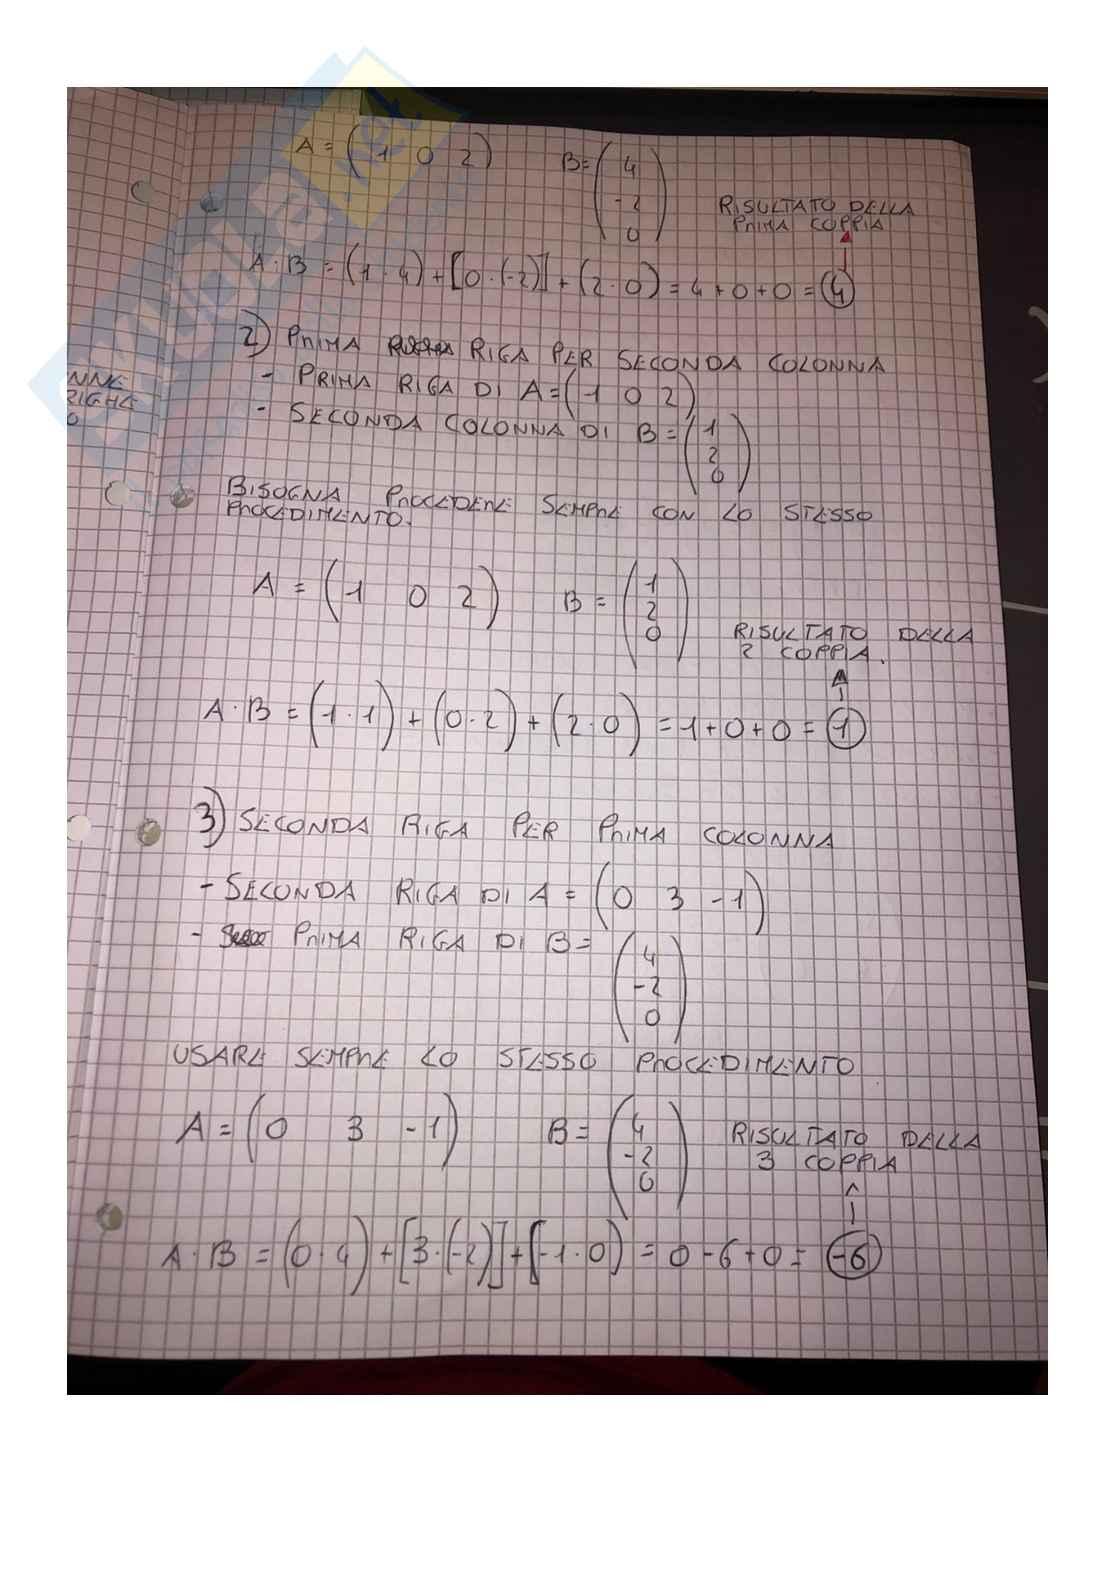 A = (1 0 2) B = (4 -2 0)
RISULTATO DELLA
PRIMA COPPIA
A·B = (1·4)+[0·(-2)]+(2·0) = 4+0+0 = 4
2) PRIMA RIGA PER SECONDA COLONNA
- PRIMA RIGA DI A=(1 0 2)
- SECONDA COLONNA DI B=(1 2 0)
NNE
RIGHE
O
BISOGNA PROCEDERE SEMPRE CON LO STESSO
PROCEDIMENTO.
A = (1 0 2) B = (1 2 0)
RISULTATO DELLA
2 COPPIA.
A·B = (1·1)+(0·2)+(2·0) = 1+0+0 = 1
3) SECONDA RIGA PER PRIMA COLONNA
- SECONDA RIGA DI A = (0 3 -1)
- PRIMA RIGA DI B = (4 -2 0)
USARE SEMPRE LO STESSO PROCEDIMENTO
A = (0 3 -1) B = (4 -2 0)
RISULTATO DELLA
3 COPPIA
A·B = (0·4)+[3·(-2)]+[-1·0) = 0-6+0 = -6